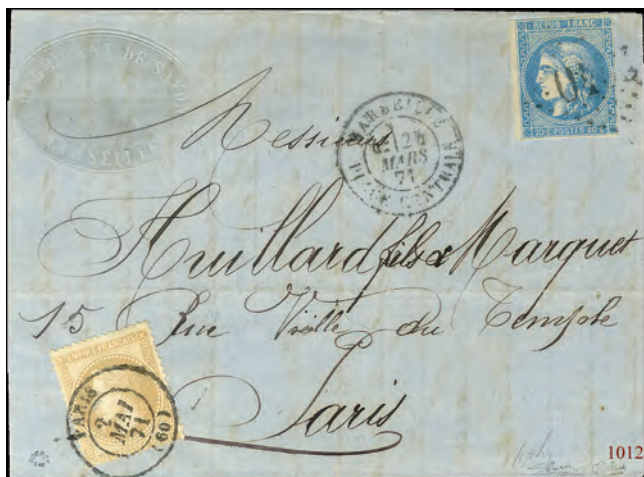 FABRICANT DE SAVON
MARSEILLE
REPUB·FRANC
20 C·POSTES·20 C
MARSEILLE
24
MARS
71
PLACE CENTRALE
Messieurs
Huillard fils & Marquet
15 Rue Vieille du Temple
Paris
EMPIRE FRANÇAIS
PARIS
2
MAI
71
(60)
1012